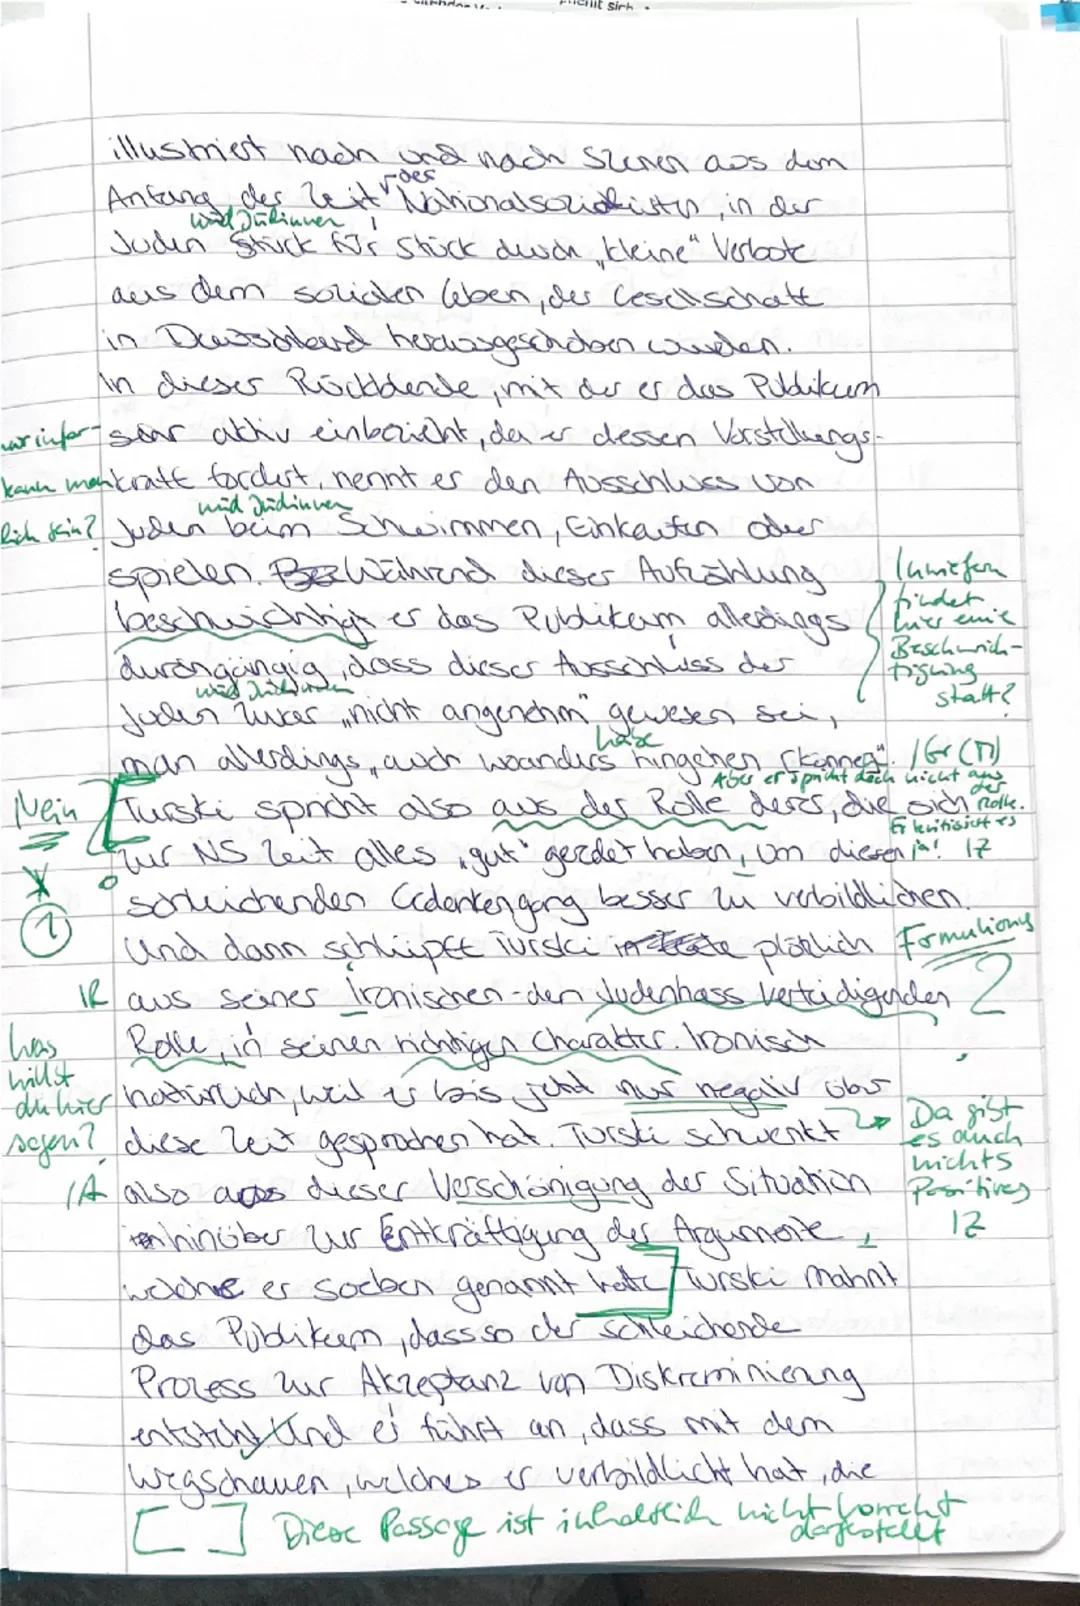 illustriert nach und nach Szenen aus dem
der
Anfang der Zeit Nationalsozialisten, in der
und Jüdinnen
Juden Stück für Stück durch „kleine" Verbote
aus dem sozialen Leben, der Gesellschaft
in Deutschland herausgeschoben wurden.
In dieser Rückblende, mit der er das Publikum
sehr aktiv einbezieht, da er dessen Vorstellungs-
kann man
kraft fordert, nennt er den Ausschluss von
und Jüdinnen
Juden beim Schwimmen, Einkaufen oder
spielen. Während dieser Aufzählung
Inwiefern
findet
hier eine
Beschwich-
tigung
statt?
beschwichtigt er das Publikum allerdings
durchgängig, dass dieser Ausschluss der
und Jüdinnen
Juden zwar „nicht angenehm" gewesen sei,
habe
man allerdings „auch woanders hingehen [können]". /Gr (M)
Aber er spricht doch nicht aus
der
Rolle.
Er kritisiert es
ja! IZ
Nein
Turski spricht also aus der Rolle derer, die sich
zur NS Zeit alles „gut" geredet haben, um diesen
schleichenden Gedankengang besser zu verbildlichen.
1
Und dann schlüpft Turski plötzlich
Formulierung
IR
aus seiner Ironischen-den Judenhass verteidigenden
Was
willst
du hier
sagen?
Rolle, in seinen richtigen Charakter. Ironisch
natürlich, weil er bis jetzt nur negativ über
Da gibt
es auch
nichts
Positives
IZ
diese Zeit gesprochen hat. Turski schwenkt
IA
also aus dieser Verschönigung der Situation
hinüber zur Entkräftigung der Argumente,
welche er soeben genannt hatte] Turski mahnt
das Publikum, dass so der schleichende
Prozess zur Akzeptanz von Diskriminierung
entsteht Und er führt an, dass mit dem
Wegschauen, welches er verbildlicht hat, die
[ ] Diese Passage ist inhaltlich nicht korrekt
dargestellt